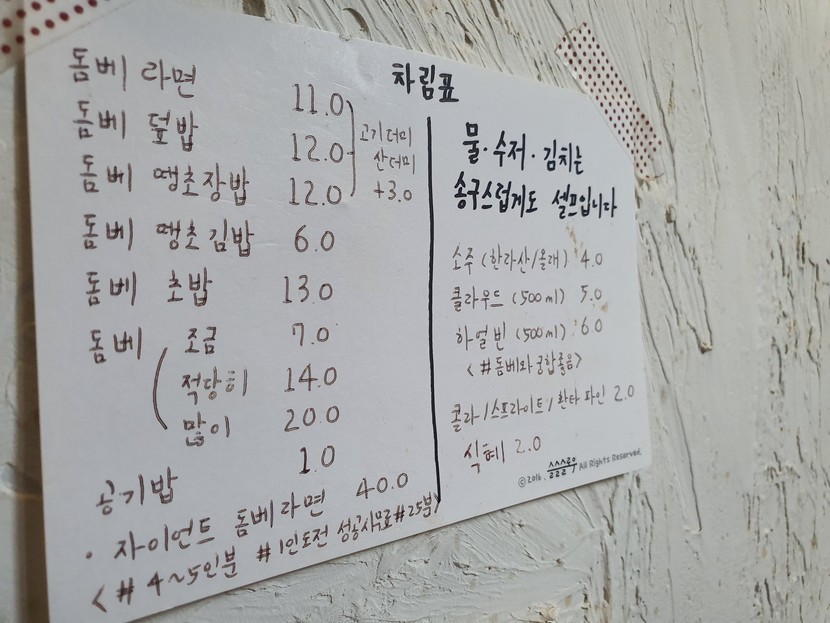 차림표
돔베 라면 11.0
돔베 덮밥 12.0
돔베 땡초장밥 12.0
고기더미
산더미
+3.0
돔베 땡초김밥 6.0
돔베 초밥 13.0
돔베 조금 7.0
적당히 14.0
많이 20.0
공기밥 1.0
· 자이언트 돔베라면 40.0
<#4~5인분 #1인도전 성공시무료#25분>
물·수저·김치는
송구스럽게도 셀프입니다
소주 (한라산/올래) 4.0
클라우드 (500ml) 5.0
하얼빈 (500ml) 6.0
<#돔베와궁합좋음>
콜라/스프라이트/환타 파인 2.0
식혜 2.0
©2016. All Rights Reserved.